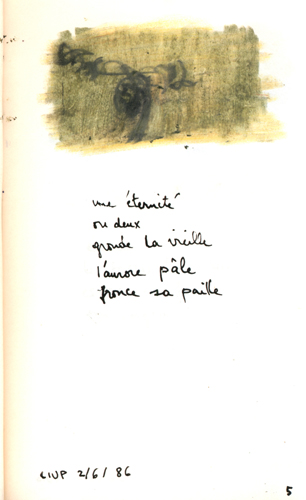 une éternité
ou deux
gronde la vieille
l'aurore pâle
fronce sa paille
LIUP 2/6/86
5